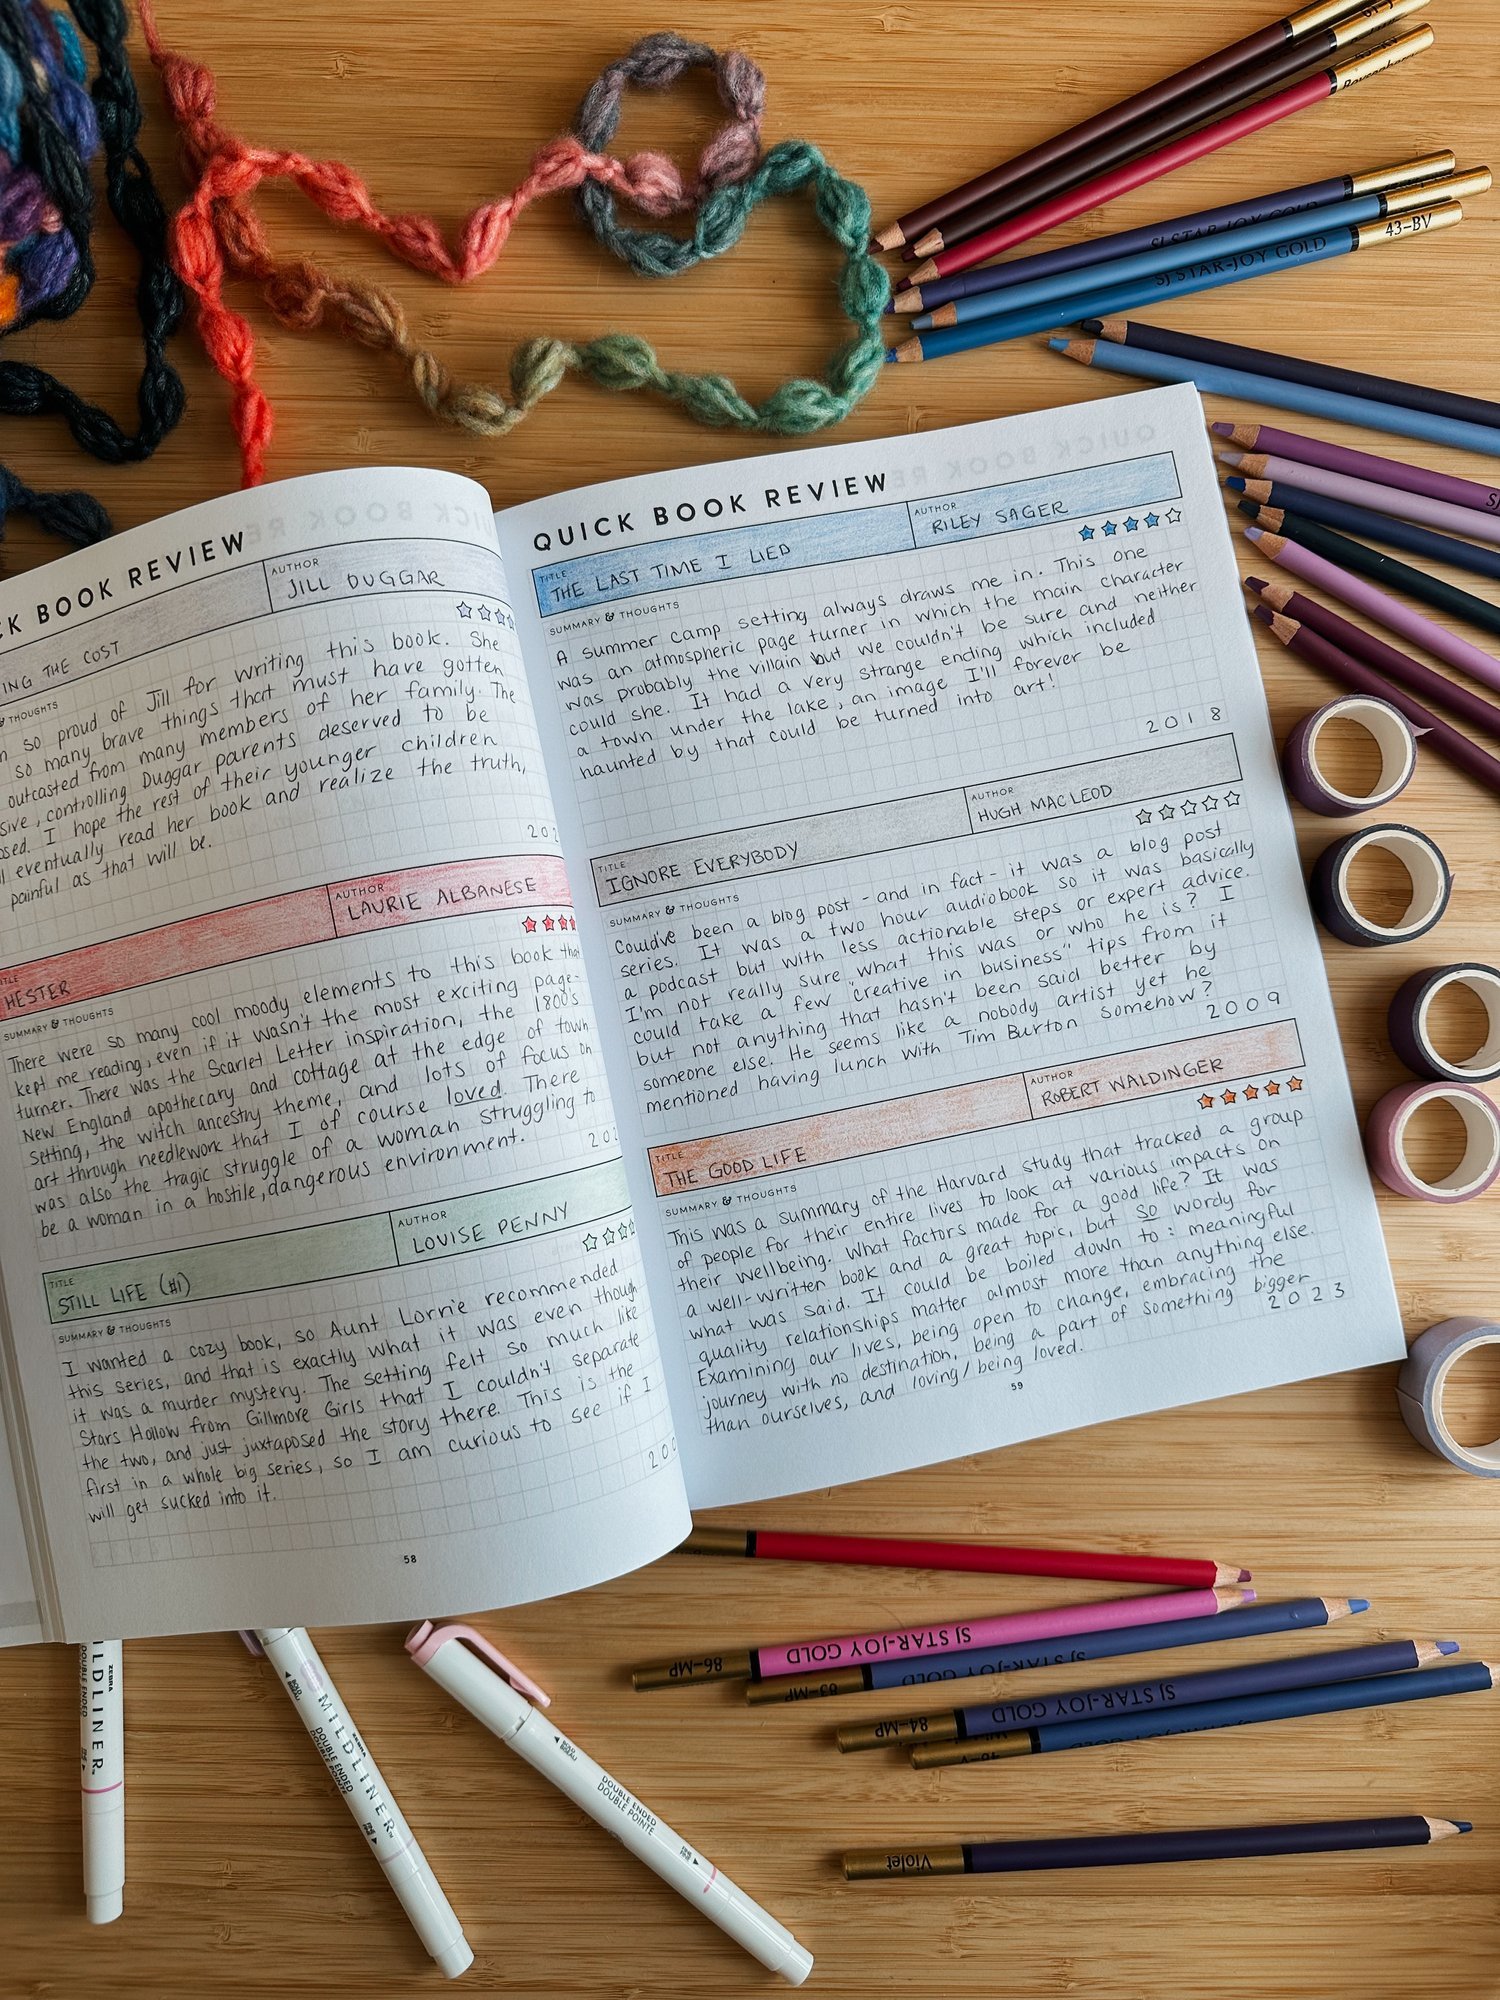 CK BOOK REVIEW
AUTHOR
JILL DUGGAR
ING THE COST
& THOUGHTS
so proud of Jill for writing this book. She
so many brave things that must have gotten
outcasted from many members of her family. The
sive, controlling Duggar parents deserved to be
osed. I hope the rest of their younger children
eventually read her book and realize the truth,
painful as that will be.
202
AUTHOR
LAURIE ALBANESE
TITLE
HESTER
SUMMARY & THOUGHTS
There were so many cool moody elements to this book that
kept me reading, even if it wasn't the most exciting page-
turner. There was the Scarlet Letter inspiration, the 1800s
New England apothecary and cottage at the edge of town
setting, the witch ancestry theme, and lots of focus on
art through needlework that I of course loved. There
was also the tragic struggle of a woman struggling to
be a woman in a hostile, dangerous environment.
202
AUTHOR
LOUISE PENNY
TITLE
STILL LIFE (#1)
SUMMARY & THOUGHTS
I wanted a cozy book, so Aunt Lorrie recommended
this series, and that is exactly what it was even though
it was a murder mystery. The setting felt so much like
Stars Hollow from Gillmore Girls that I couldn't separate
the two, and just juxtaposed the story there. This is the
first in a whole big series, so I am curious to see if I
will get sucked into it.
200
58
QUICK BOOK REVIEW
TITLE
THE LAST TIME I LIED
AUTHOR
RILEY SAGER
SUMMARY & THOUGHTS
A summer camp setting always draws me in. This one
was an atmospheric page turner in which the main character
was probably the villain but we couldn't be sure and neither
could she. It had a very strange ending which included
a town under the lake, an image I'll forever be
haunted by that could be turned into art!
2018
TITLE
IGNORE EVERYBODY
AUTHOR
HUGH MACLEOD
SUMMARY & THOUGHTS
Could've been a blog post - and in fact - it was a blog post
series. It was a two hour audiobook so it was basically
a podcast but with less actionable steps or expert advice.
I'm not really sure what this was or who he is? I
could take a few "creative in business" tips from it
but not anything that hasn't been said better by
someone else. He seems like a nobody artist yet he
mentioned having lunch with Tim Burton somehow?
2009
TITLE
THE GOOD LIFE
AUTHOR
ROBERT WALDINGER
SUMMARY & THOUGHTS
This was a summary of the Harvard study that tracked a group
of people for their entire lives to look at various impacts on
their wellbeing. What factors made for a good life? It was
a well-written book and a great topic, but SO wordy for
what was said. It could be boiled down to: meaningful
quality relationships matter almost more than anything else.
Examining our lives, being open to change, embracing the
journey with no destination, being a part of something bigger
than ourselves, and loving/being loved.
2023
59
SJ STAR-JOY GOLD
SJ STAR-JOY GOLD 43-BV
SJ STAR-JOY GOLD 86-MP
SJ STAR-JOY GOLD 83-MP
SJ STAR-JOY GOLD 84-MP
Violet
ZEBRA
ILDLINER
DOUBLE ENDED
ZEBRA
MILDLINER
DOUBLE ENDED
DOUBLE POINTE
DOUBLE ENDED
DOUBLE POINTE